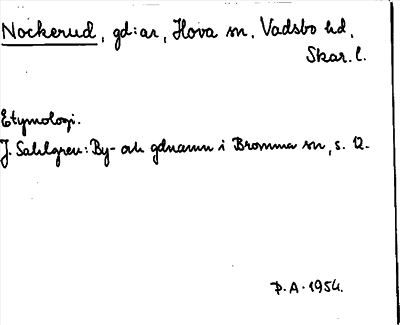 Nockerud, gd:ar, Hova sn, Vadsbo hd,
Skar. l.
Etymologi.
J. Sahlgren: By- och gdnamn i Bromma sn, s. 12.
P.A. 1954.